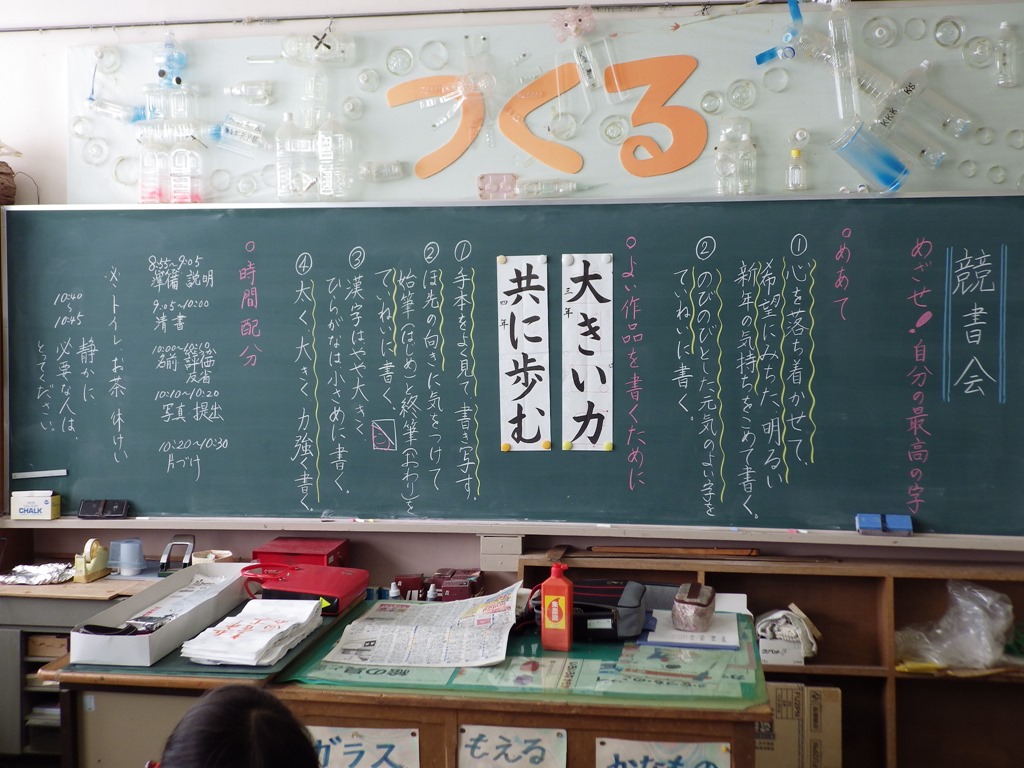 つくる
競書会
めざせ！自分の最高の字
○めあて
①心を落ち着かせて、
希望にみちた、明るい
新年の気持ちをこめて書く。
②のびのびとした元気のよい字を
ていねいに書く。
○よい作品を書くために
大きい力
三年
共に歩む
四年
①手本をよく見て、書き写す。
②ほ先の向きに気をつけて
始筆(はじめ)と終筆(おわり)を
ていねいに書く。
③漢字はやや大きく
ひらがなは小さめに書く。
④太く、大きく、力強く書く。
○時間配分
8:55~9:05
準備 説明
9:05~10:00
清書
10:00~10:10
名前 評価
反省
10:10~10:20
写真 提出
10:20~10:30
片づけ
※トイレ、お茶 休けい
静かに
必要な人は、
とってください。
10:40
10:45
CHALK
KKK
KS
ガラス
もえる
かなもの